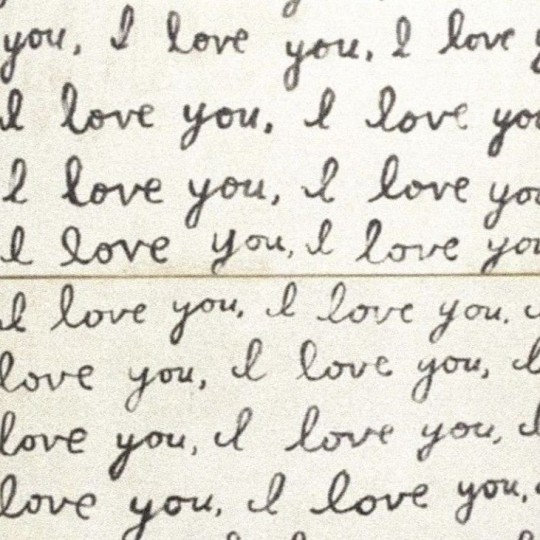 you, I love you, I love
I love you, I love you
I love you, I love you
I love you, I love you
I love you, I love you,
love you, I love you, I
love you, I love you, I
love you, I love you,